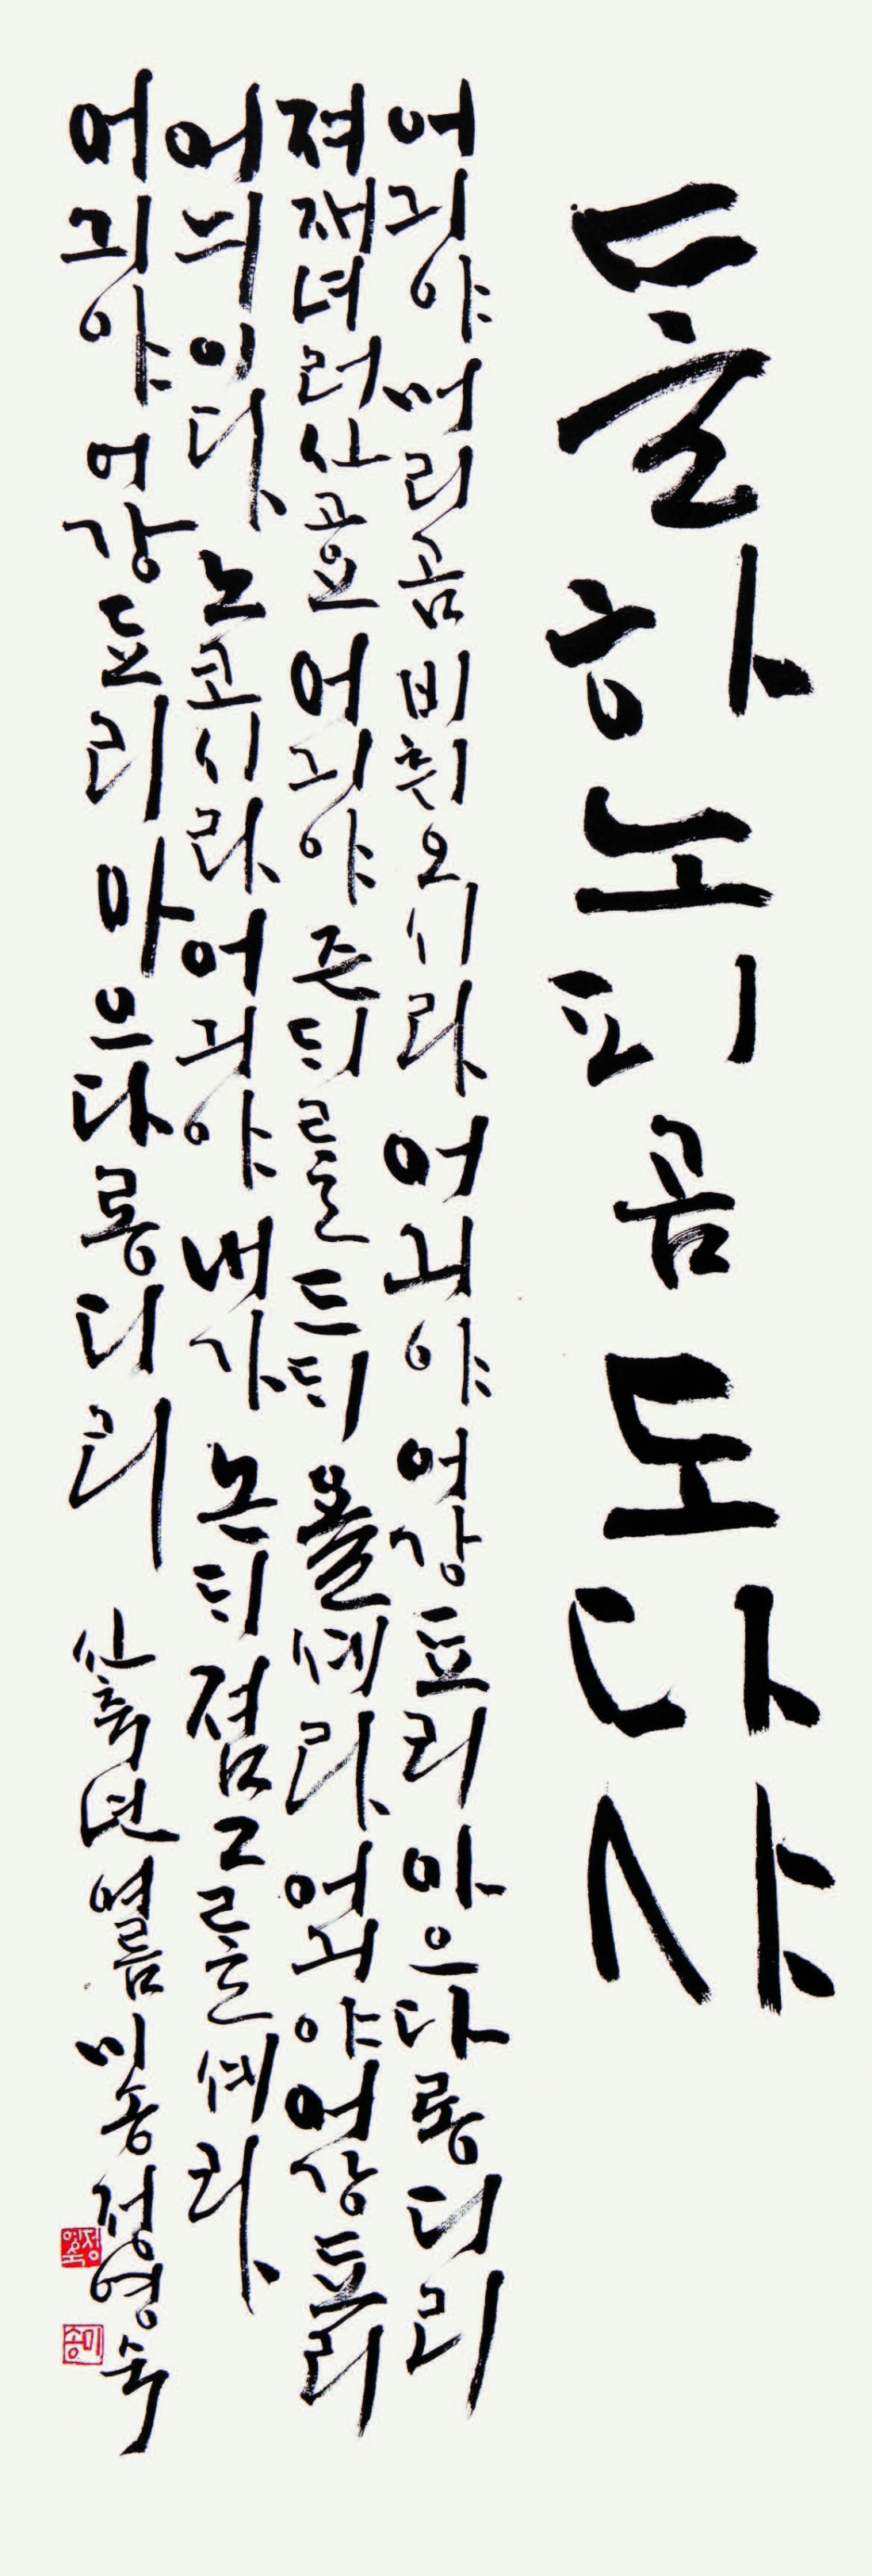 들하 노피곰 도다샤
어긔야 머리곰 비츼오시라 어긔야 어강됴리 아으 다롱디리
져재 녀러신고요 어긔야 즌듸를 드듸욜셰라 어긔야 어강됴리
어늬이다 노코시라 어긔야 내가 논듸 졈그를셰라
어긔야 어강됴리 아으 다롱디리 신축년 여름 미송 정영숙
정영숙
미송